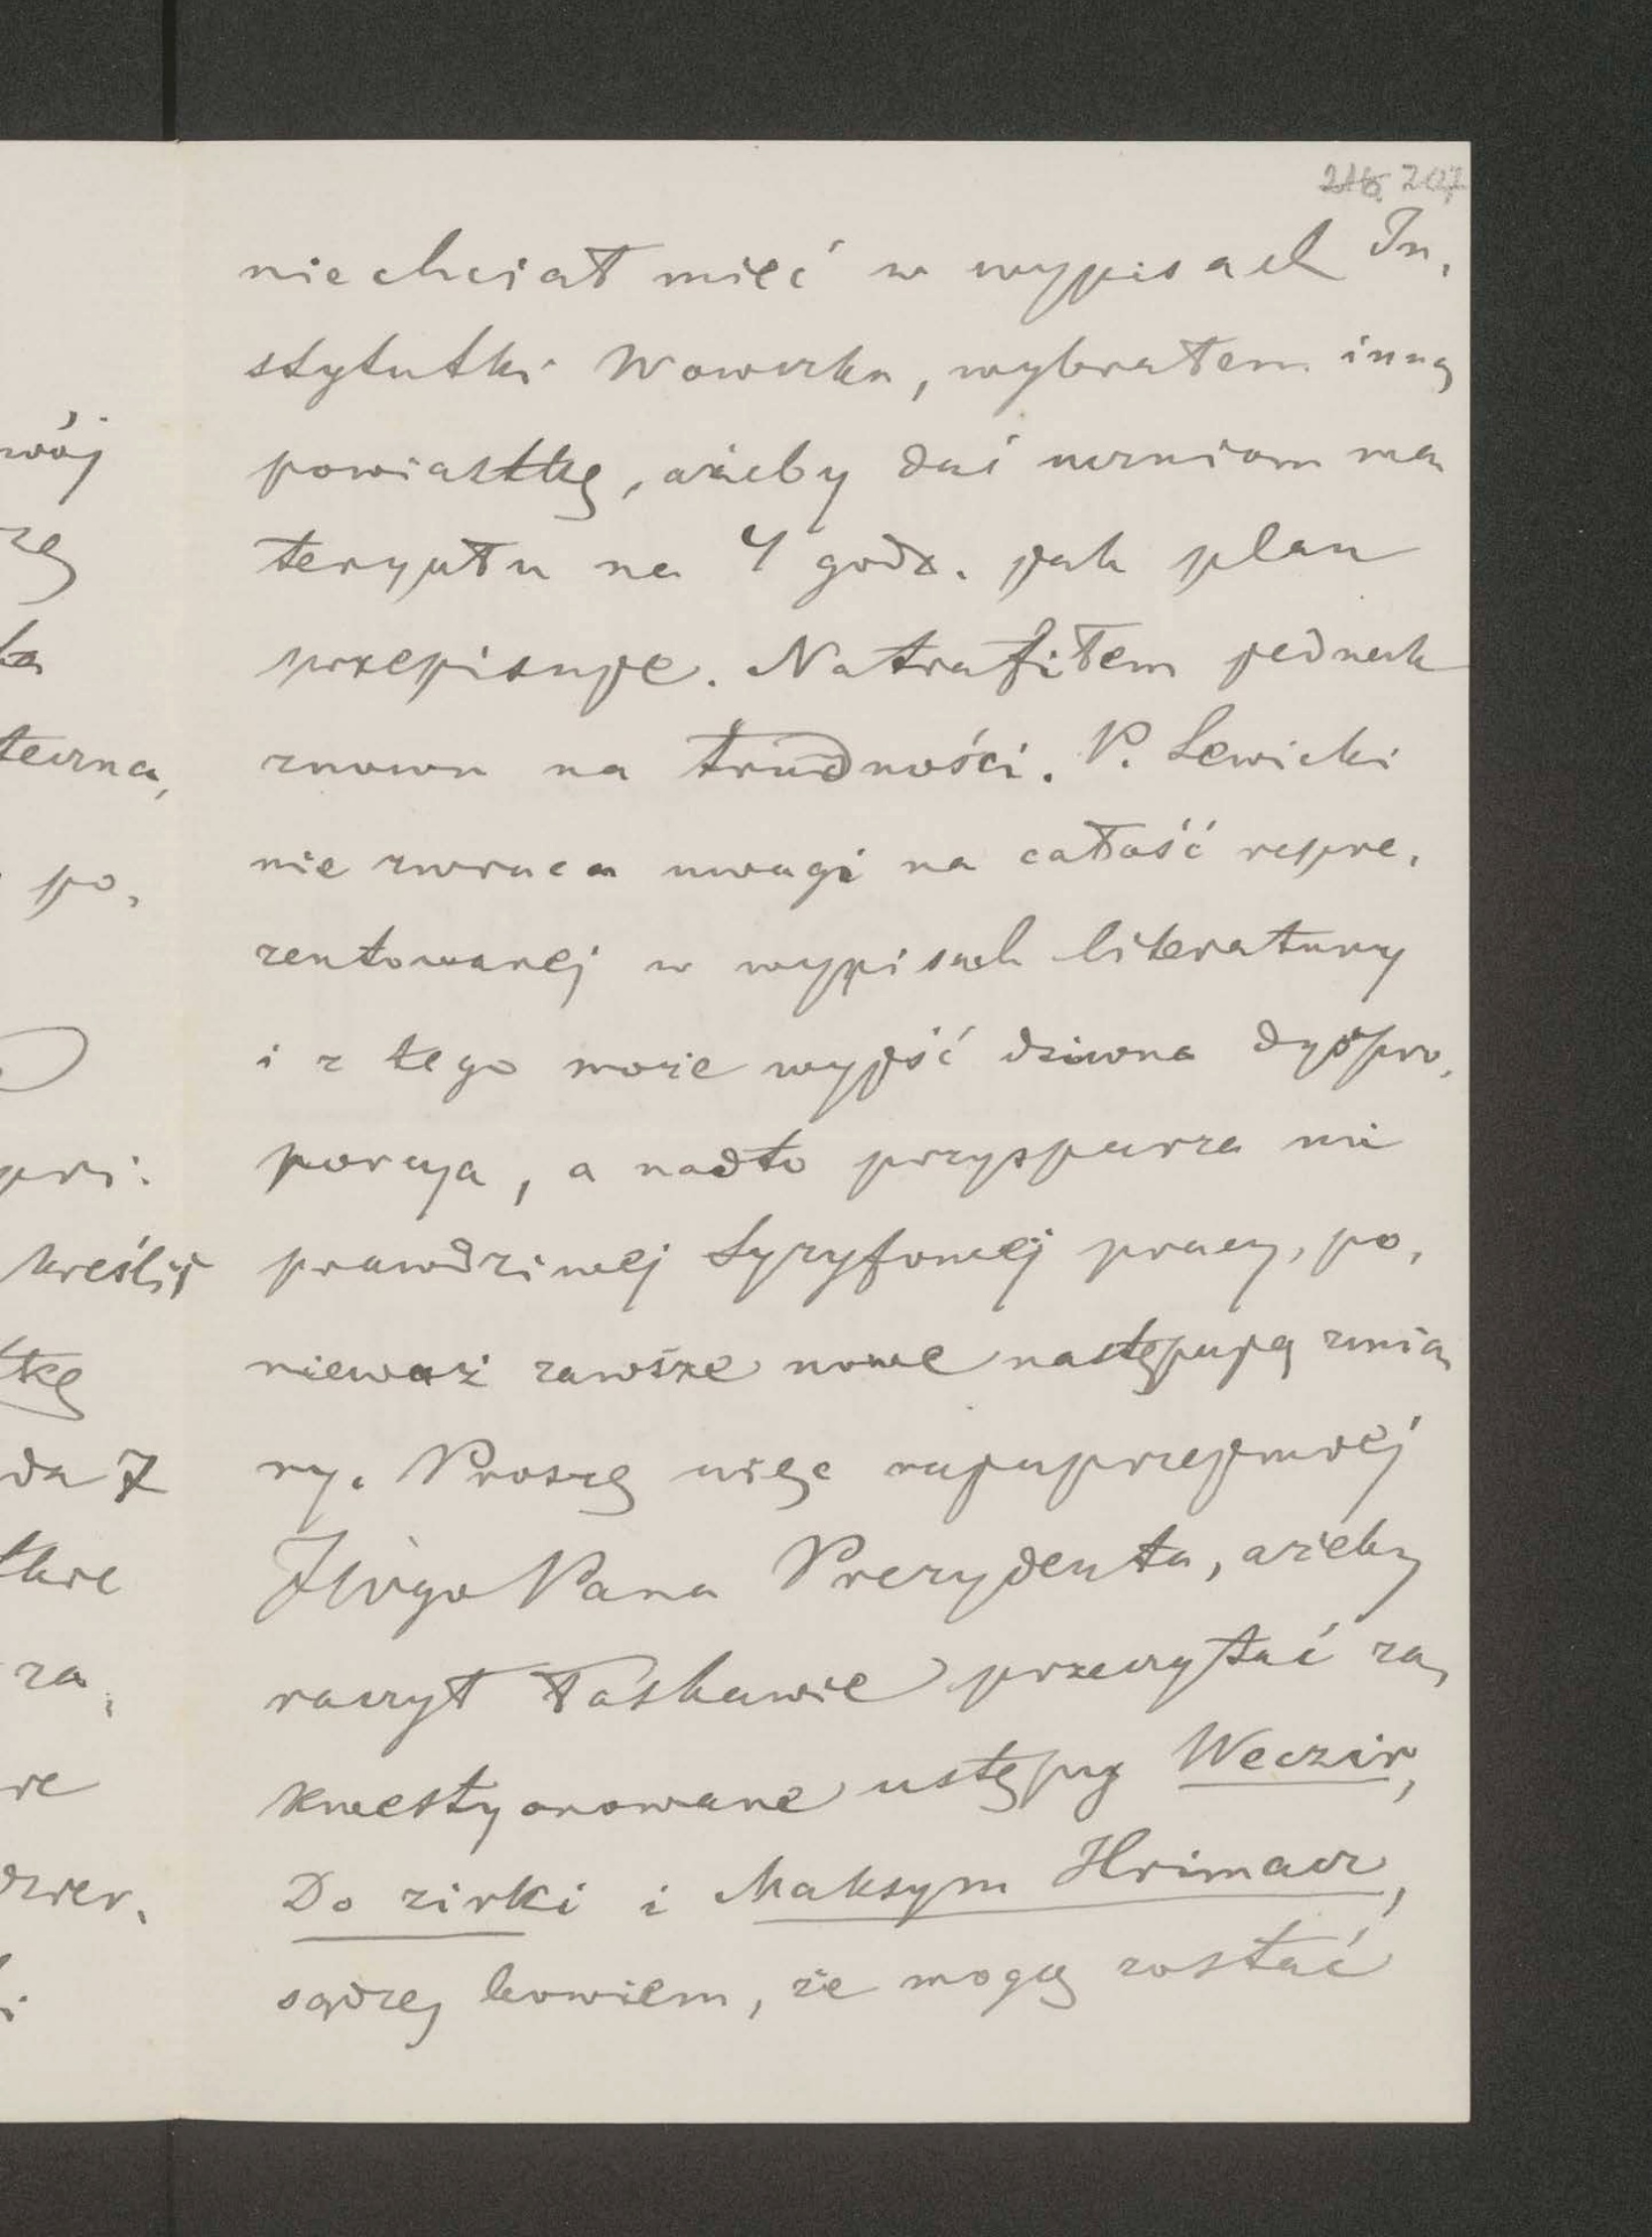 216. 207
nie chciał mieć w wypisach In,
stytutki Wowczka, wybrałem inną
powiastkę, ażeby dać uczniom ma,
teryału na 4 godz. jak plan
przepisuje. Natrafiłem jednak
znowu na trudności. P. Lewicki
nie zwraca uwagi na całość repre,
zentowanej w wypisach literatury
i z tego może wyjść dziwna dyspro,
porcya, a nadto przysparza mi
prawdziwej Syzyfowej pracy, po,
nieważ zawsze nowe następują zmia,
ny. Proszę więc najuprzejmiej
JWgo Pana Prezydenta, ażeby
raczył łaskawie przeczytać za,
kwestyonowane ustępy Weczir,
Do zirki i Maksym Hrimacz,
sądzę bowiem, że mogą zostać
wój
zę
ka
teczna,
po,
pri:
kreślił
tkę
da 7
tkie
za,
re
dzier,
i